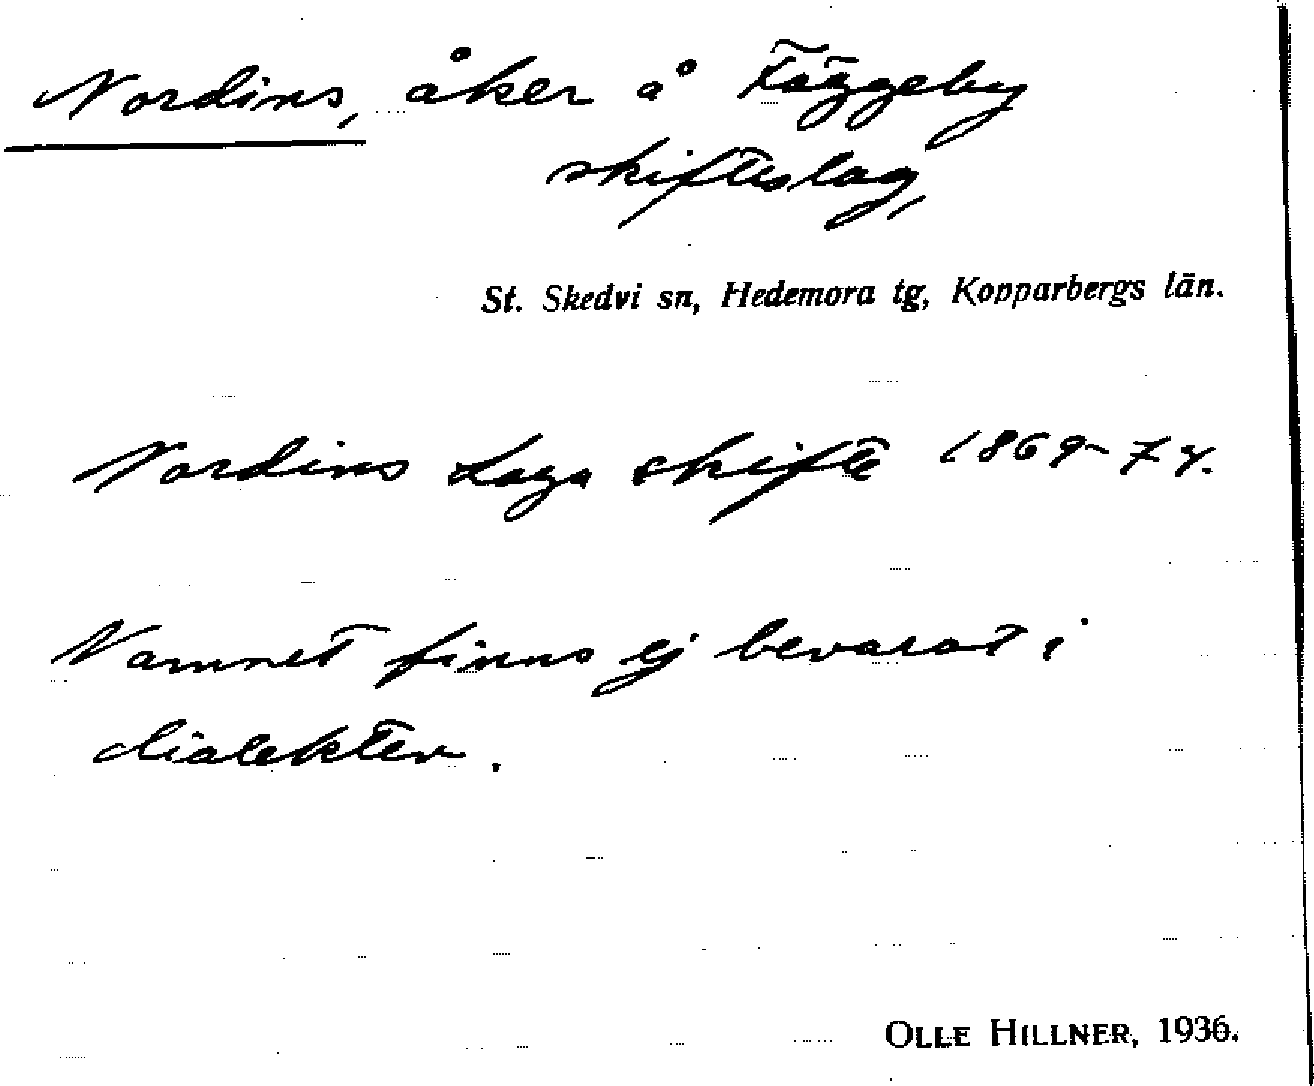 Nordins, åker å Täggeby
skifteslag,
St. Skedvi sn, Hedemora tg, Kopparbergs län.
Nordins Laga skifte 1869-74.
Namnet finns ej bevarat i
dialekten.
OLLE HILLNER, 1936.